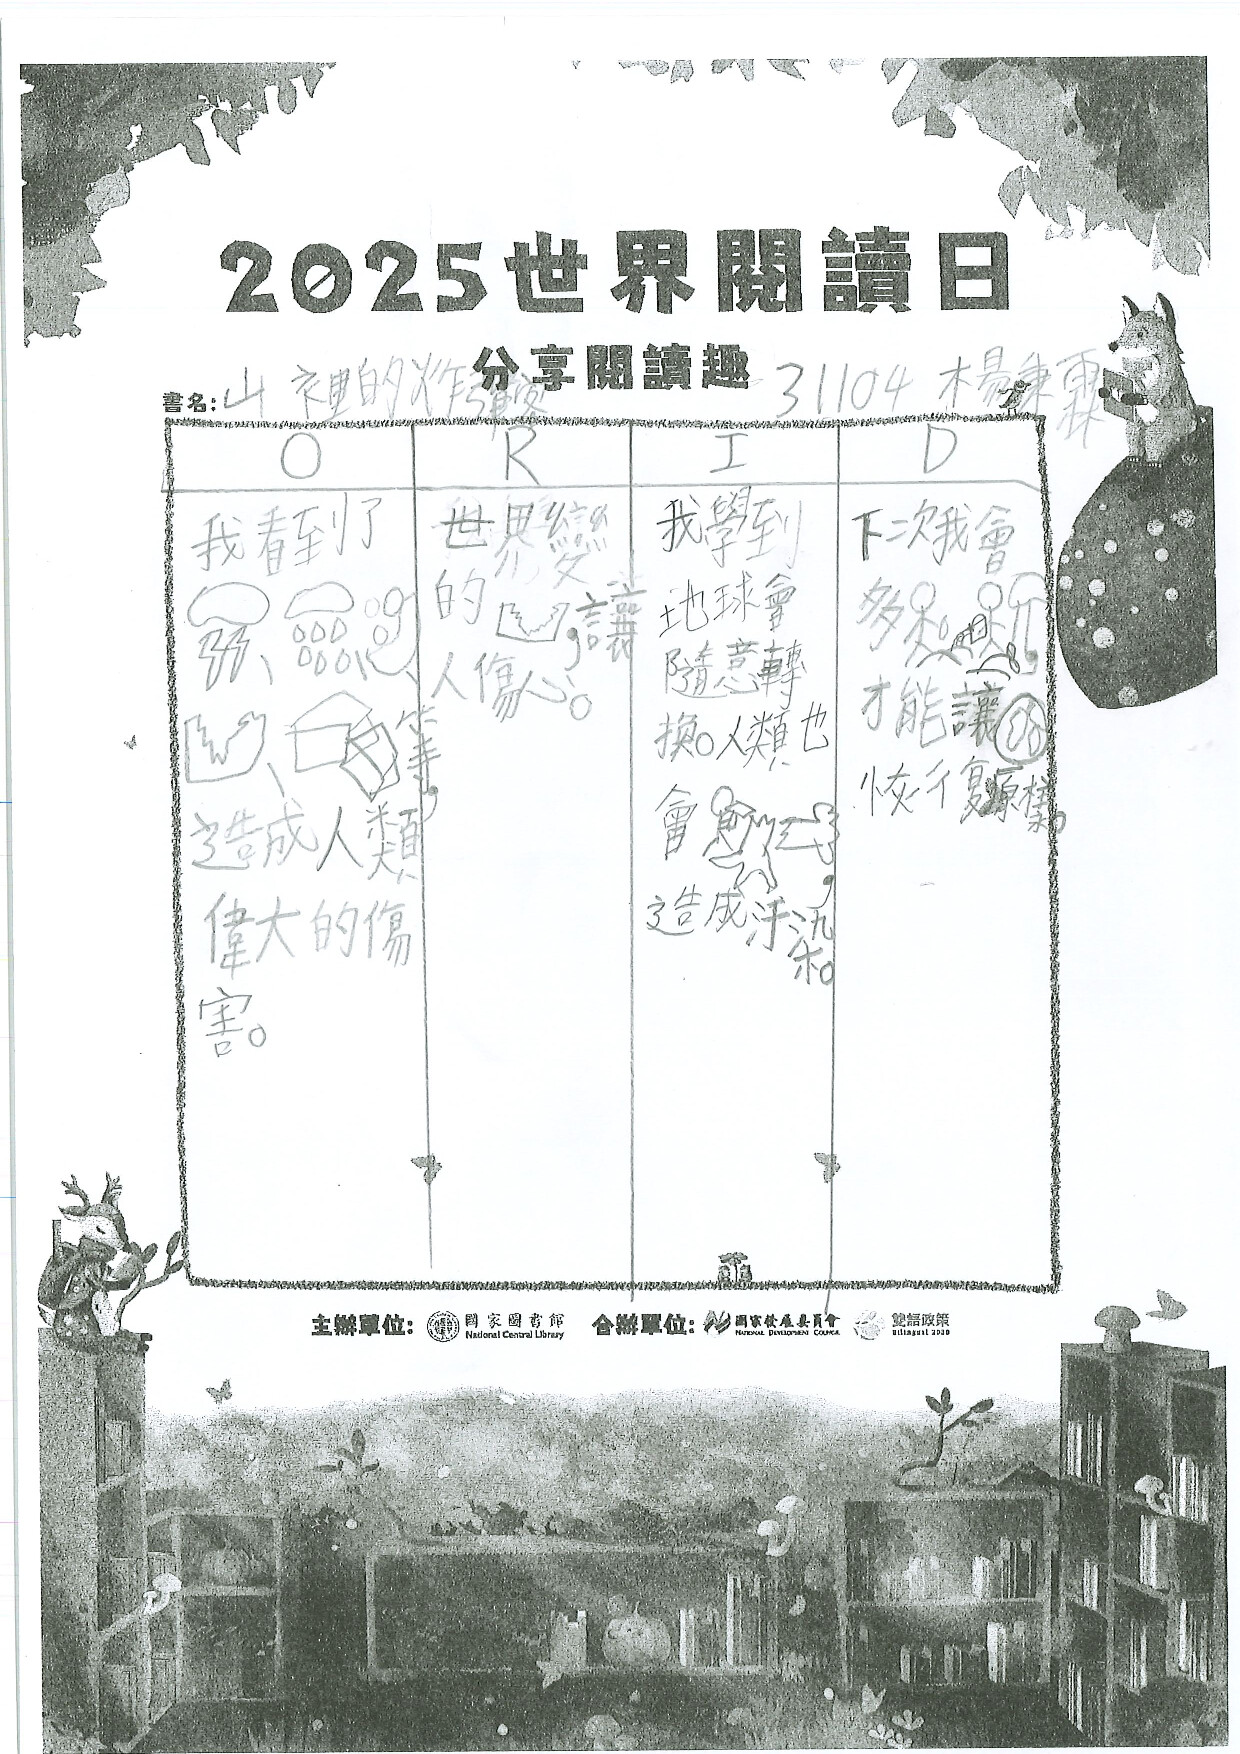 2025世界閱讀日
分享閱讀趣
書名:山裡的炸彈
31104 楊秉霖
O
R
I
D
我看到了
、
、
、等
,
造成人類
偉大的傷
害。
世界變
的
,讓
人傷心。
我學到
地球會
隨意轉
換。人類也
會
,
造成汙染。
下次我會
多
,
才能讓
恢復原樣。
主辦單位: 國家圖書館 National Central Library
合辦單位: 國家發展委員會 NATIONAL DEVELOPMENT COUNCIL
雙語政策 Bilingual 2030